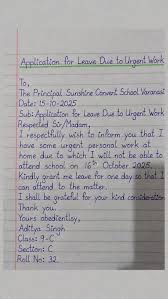 Application for Leave Due to Urgent Work
To,
The Principal Sunshine Convert School Varanasi
Date: 15-10-2025
Sub: Application for Leave Due to Urgent Work
Respected Sir/Madam,
I respectfully wish to inform you that I
have some urgent personal work at
home due to which I will not be able to
attend school on 16th October 2025.
Kindly grant me leave for one day so that I
can attend to the matter.
I shall be grateful for your kind consideration
Thank you.
Yours obediently,
Aditya Singh
Class: 9-C
Section: C
Roll No: 32